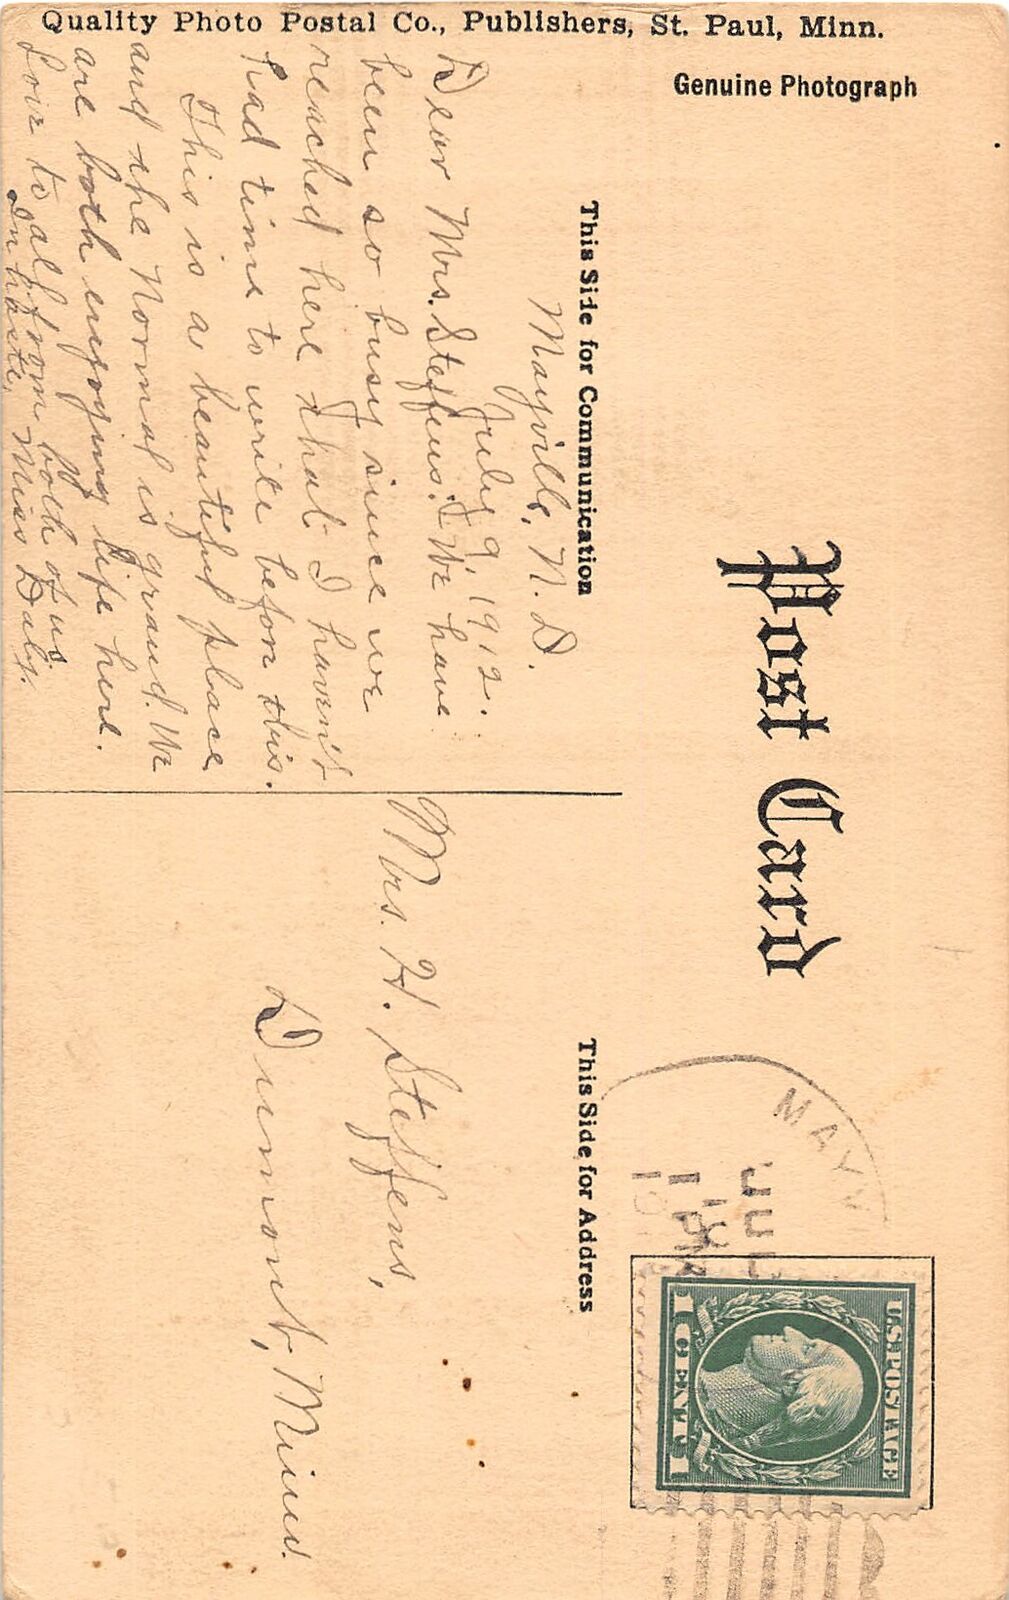 Quality Photo Postal Co., Publishers, St. Paul, Minn.
Genuine Photograph
Post Card
This Side for Communication
Mayville, N. D.
July 9 1912.
Dear Mrs. Steffens: We have
been so busy since we
reached here that I havn't
had time to write before this.
This is a beautiful place
and the Normal is grand. We
are both enjoying life here.
Love to all from both of us
In haste, Miss Daly.
This Side for Address
Mrs. H. Steffens,
Dumont, Minn.
MAYV
JUL
10
1 PM
U.S. POSTAGE
1 CENT 1